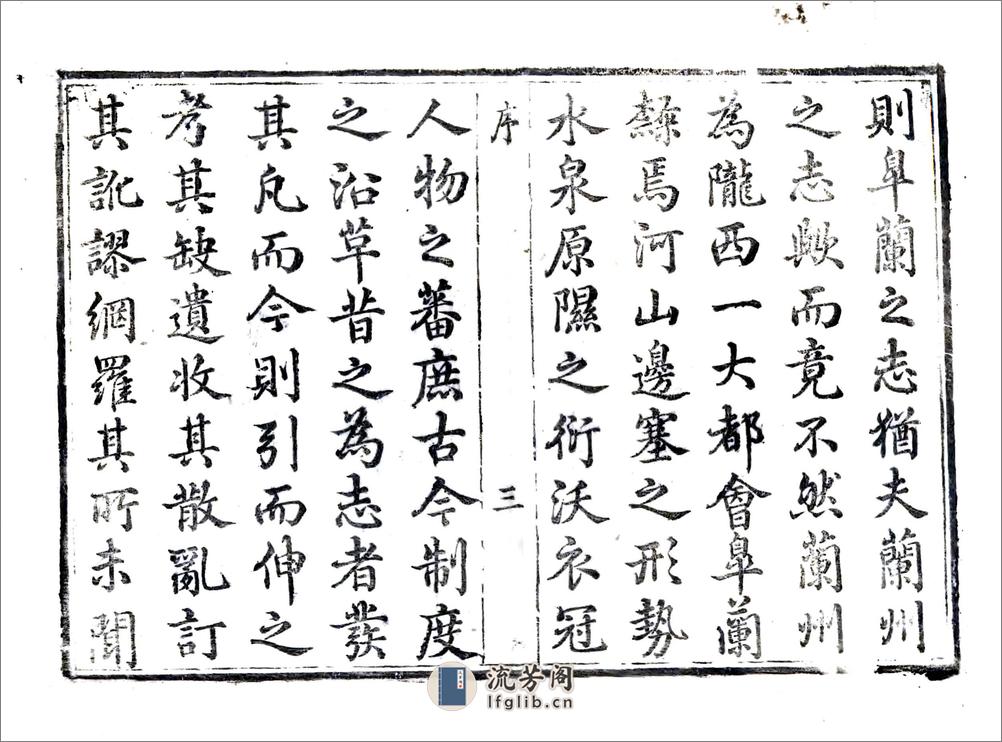 則臯蘭之志猶夫蘭州
之志歟而竟不然蘭州
為隴西一大都會臯蘭
繫焉河山邊塞之形勢
水泉原隰之衍沃衣冠
序
三
人物之蕃庶古今制度
之沿革昔之為志者發
其凡而今則引而伸之
考其缺遺收其散亂訂
其訛謬網羅其所未聞
流芳阁
lfglib.cn